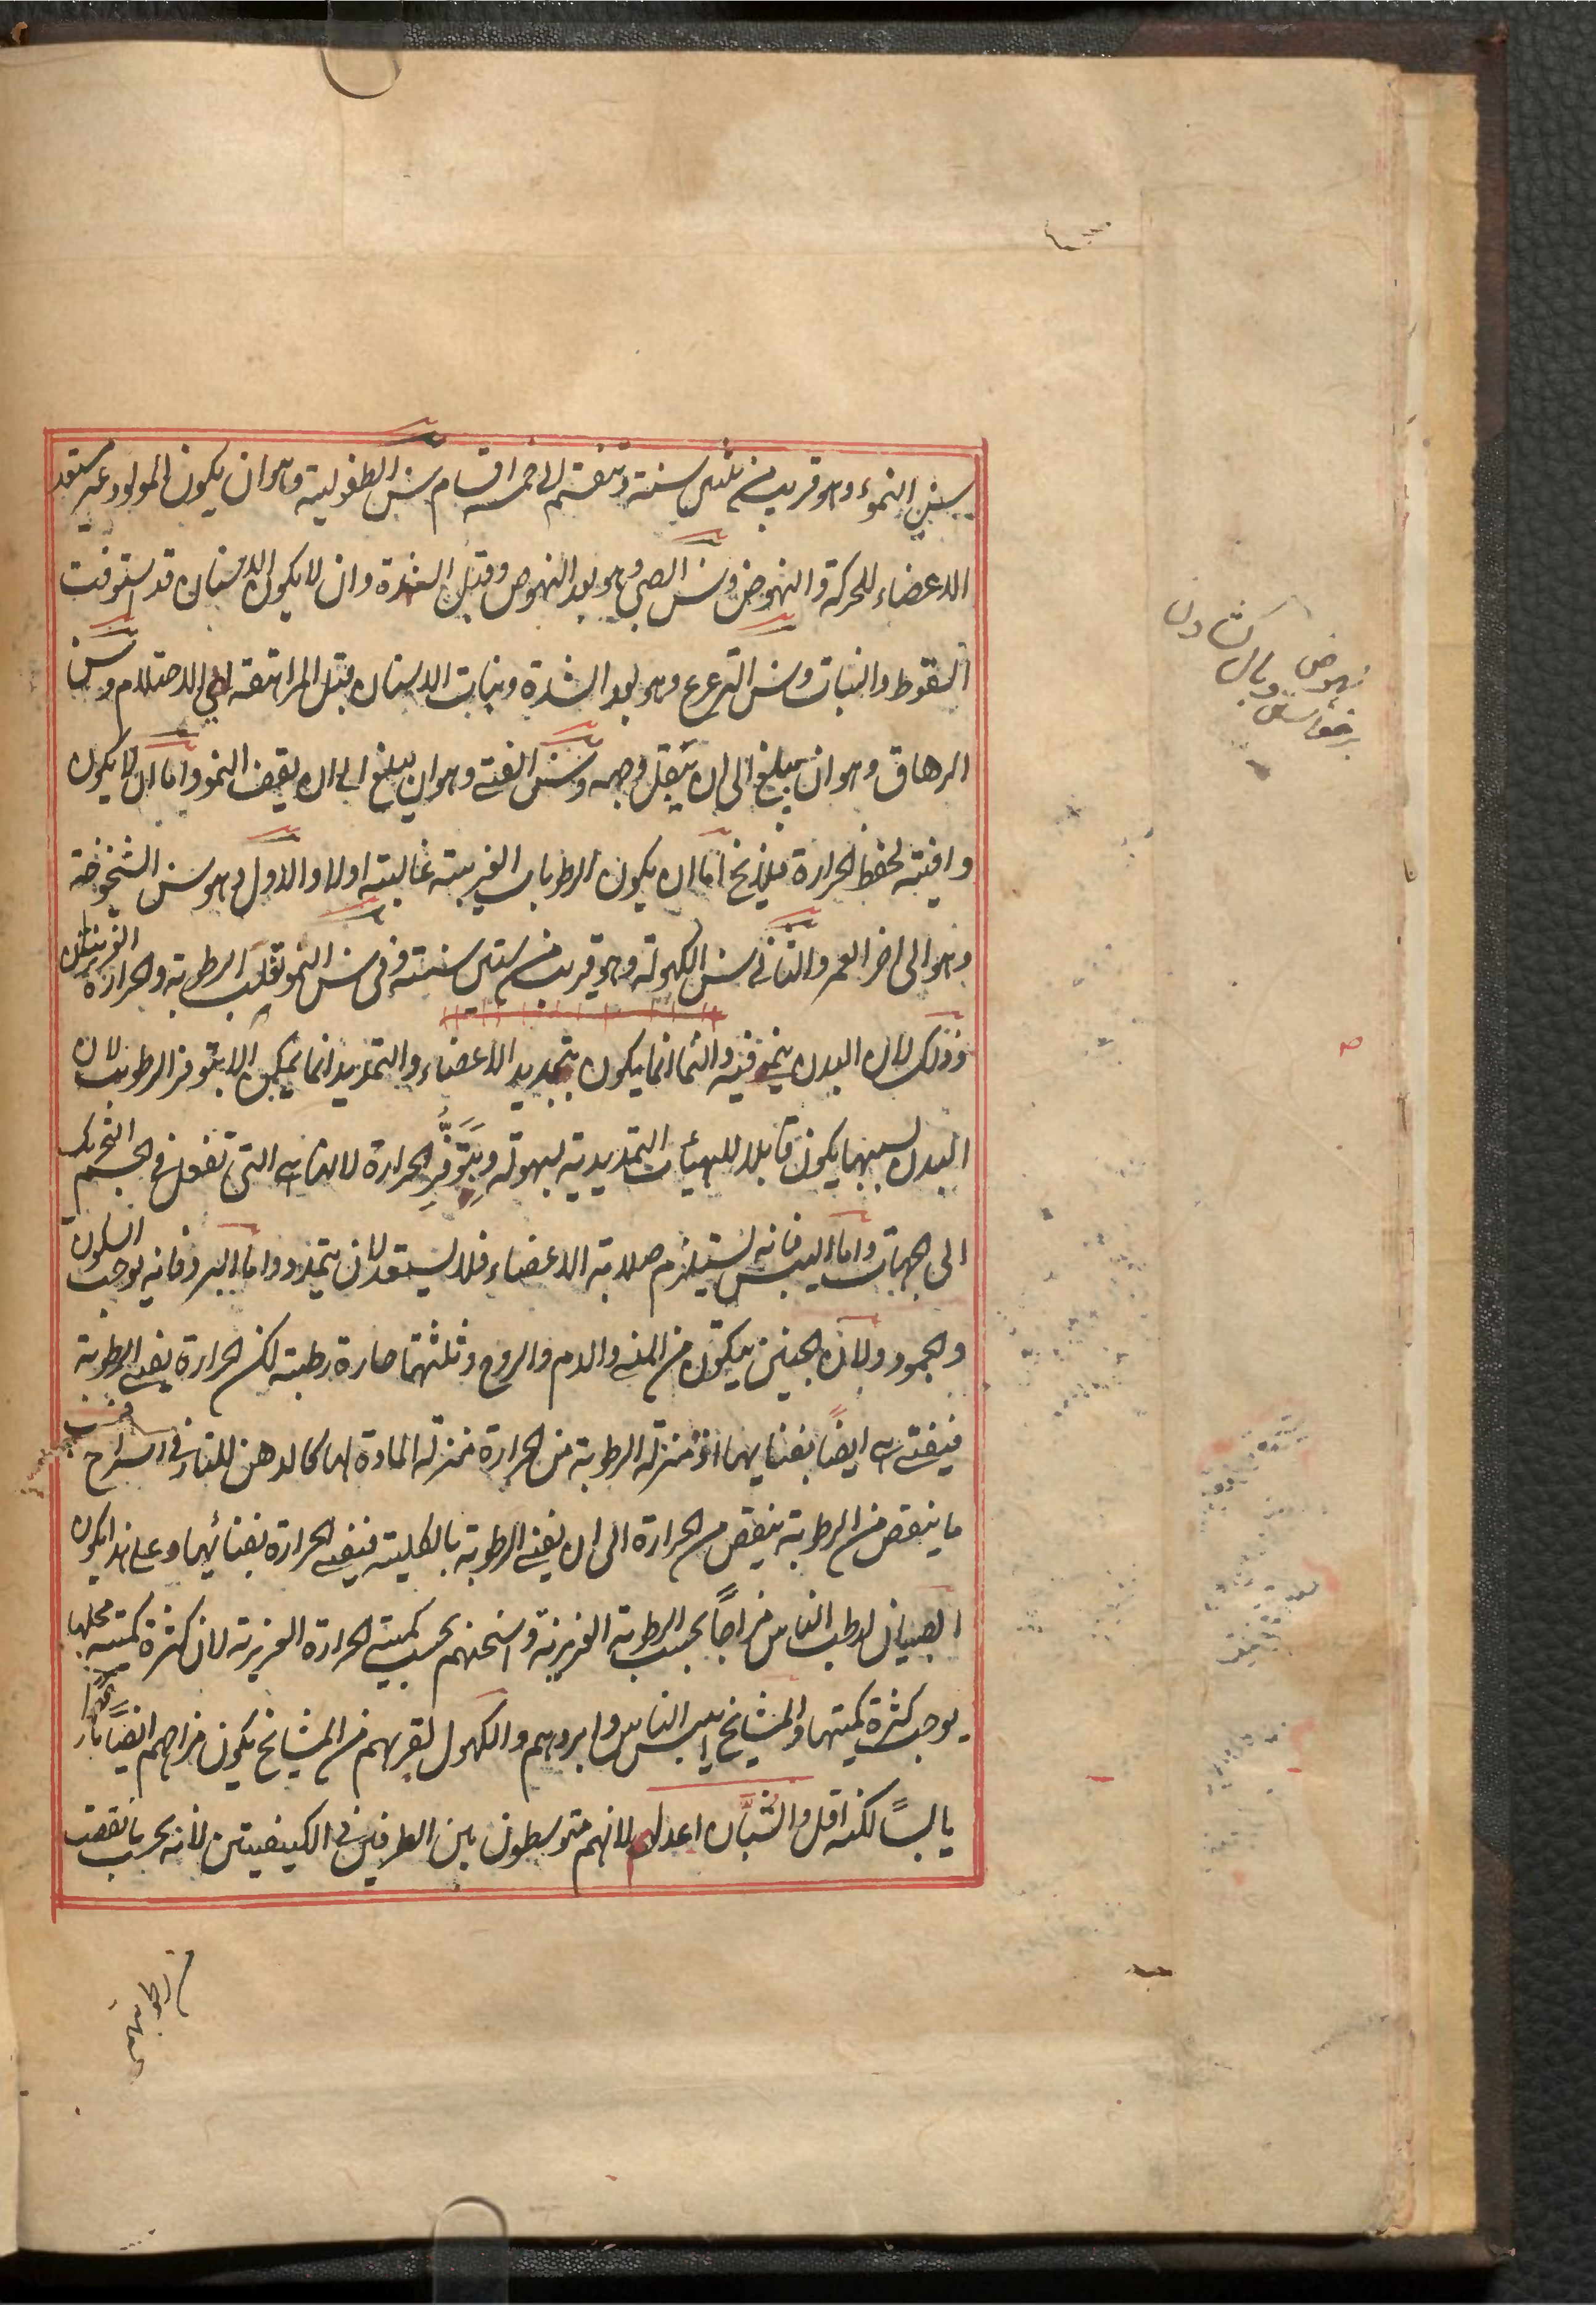 سن النموء وهو قريب من ثلثين سنة وتنقسم الى خمسة اقسام سن الطفولية وهو ان يكون المولود غير مستعد
الاعضاء للحركة والنهوض وسن الصبي وهو بعد النهوض وقبل الشدة وان لا يكون الاسنان قد استوفت
السقوط والنبات وسن الترعرع وهو بعد الشدة ونبات الاسنان قبل المراهقة الى الاحتلام وسن
الرهاق وهو ان يبلغ الى ان يبقل وجهه وسن الفتى وهو ان يبلغ الى ان يقف النمو واما ان لا يكون
وافية لحفظ الحرارة فلا يخ اما ان يكون الرطوبات الغريبة غالبة اولا والاول وهو سن الشيخوخة
وهو الى اخر العمر والثاني سن الكهولة وهو قريب من ستين سنة وفي سن النمو تغلب الرطوبة والحرارة الغريزيتان
وذلك لان البدن ينمو فيه والنما انما يكون بتمديد الاعضاء والتمديد انما يمكن الا بتوفر الرطوبات لان
البدن بسببها يكون قابلا للهيئات التمديدية بسهولة وبتوفر الحرارة لانها هي التي تفعل في الجسم التحريك
الى الجهات واما اليبس فانه يستلزم صلابة الاعضاء فلا يستعد لان يتمدد واما البرد فانه يوجب السكون
والجمود ولان الجنين يتكون من المني والدم والروح وثلثتها حارة رطبة لكن الحرارة يفني الرطوبة
فيفنى هي ايضا بفنائها اذ منزلة الرطوبة من الحرارة منزلة المادة لها كالدهن للنار في السراج
ما ينقص من الرطوبة ينقص من الحرارة الى ان يفنى الرطوبة بالكلية فيفنى الحرارة بفنائها وعلى هذا يكون
الصبيان ارطب الناس مزاجاً بحسب الرطوبة الغريزية واسخنهم بحسب كمية الحرارة الغريزية لان كثرة كمية محلها
يوجب كثرة كميتها والمشايخ ايبس الناس وابردهم والكهول لقربهم من المشايخ يكون مزاجهم ايضاً باردا
يابساً لكنه اقل والشبّان اعدلهم لانهم متوسطون بين الطرفين في الكيفيتين لانه بحسب ما نقصت
نهوض